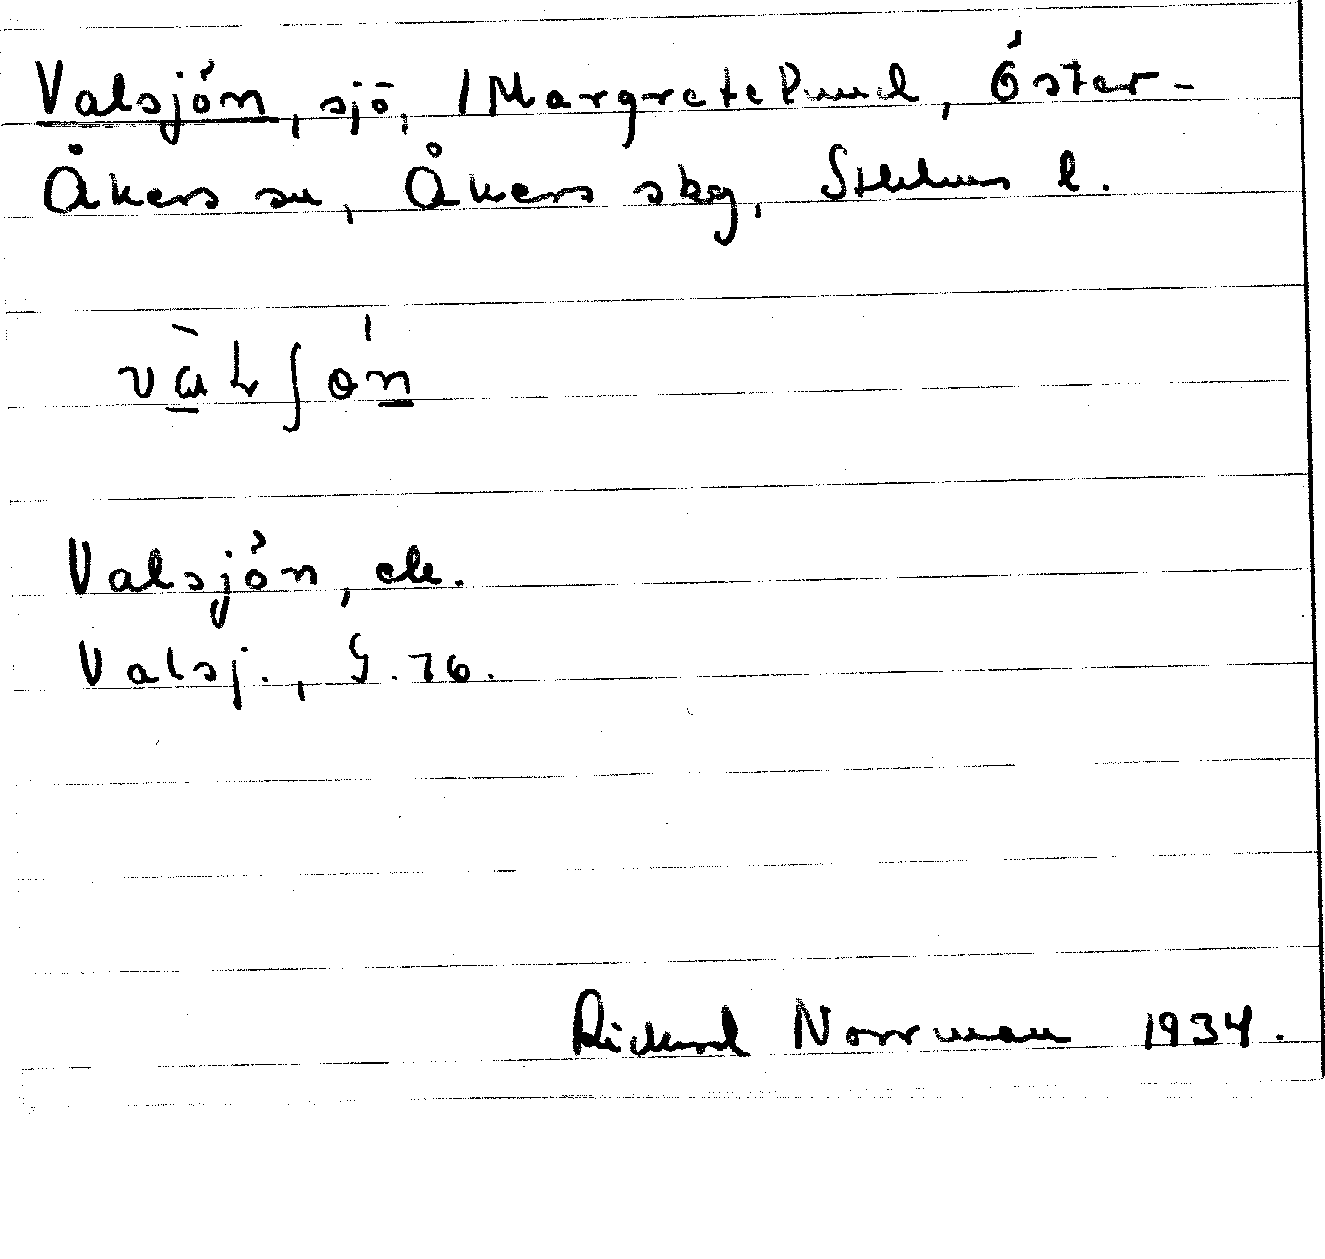 Valsjön, sjö, /Margretelund, Öster-
Åkers sn, Åkers skg, Sthlms l.
Valsjön, ek.
Valsj., G. 76.
Rickard Norrman 1934.